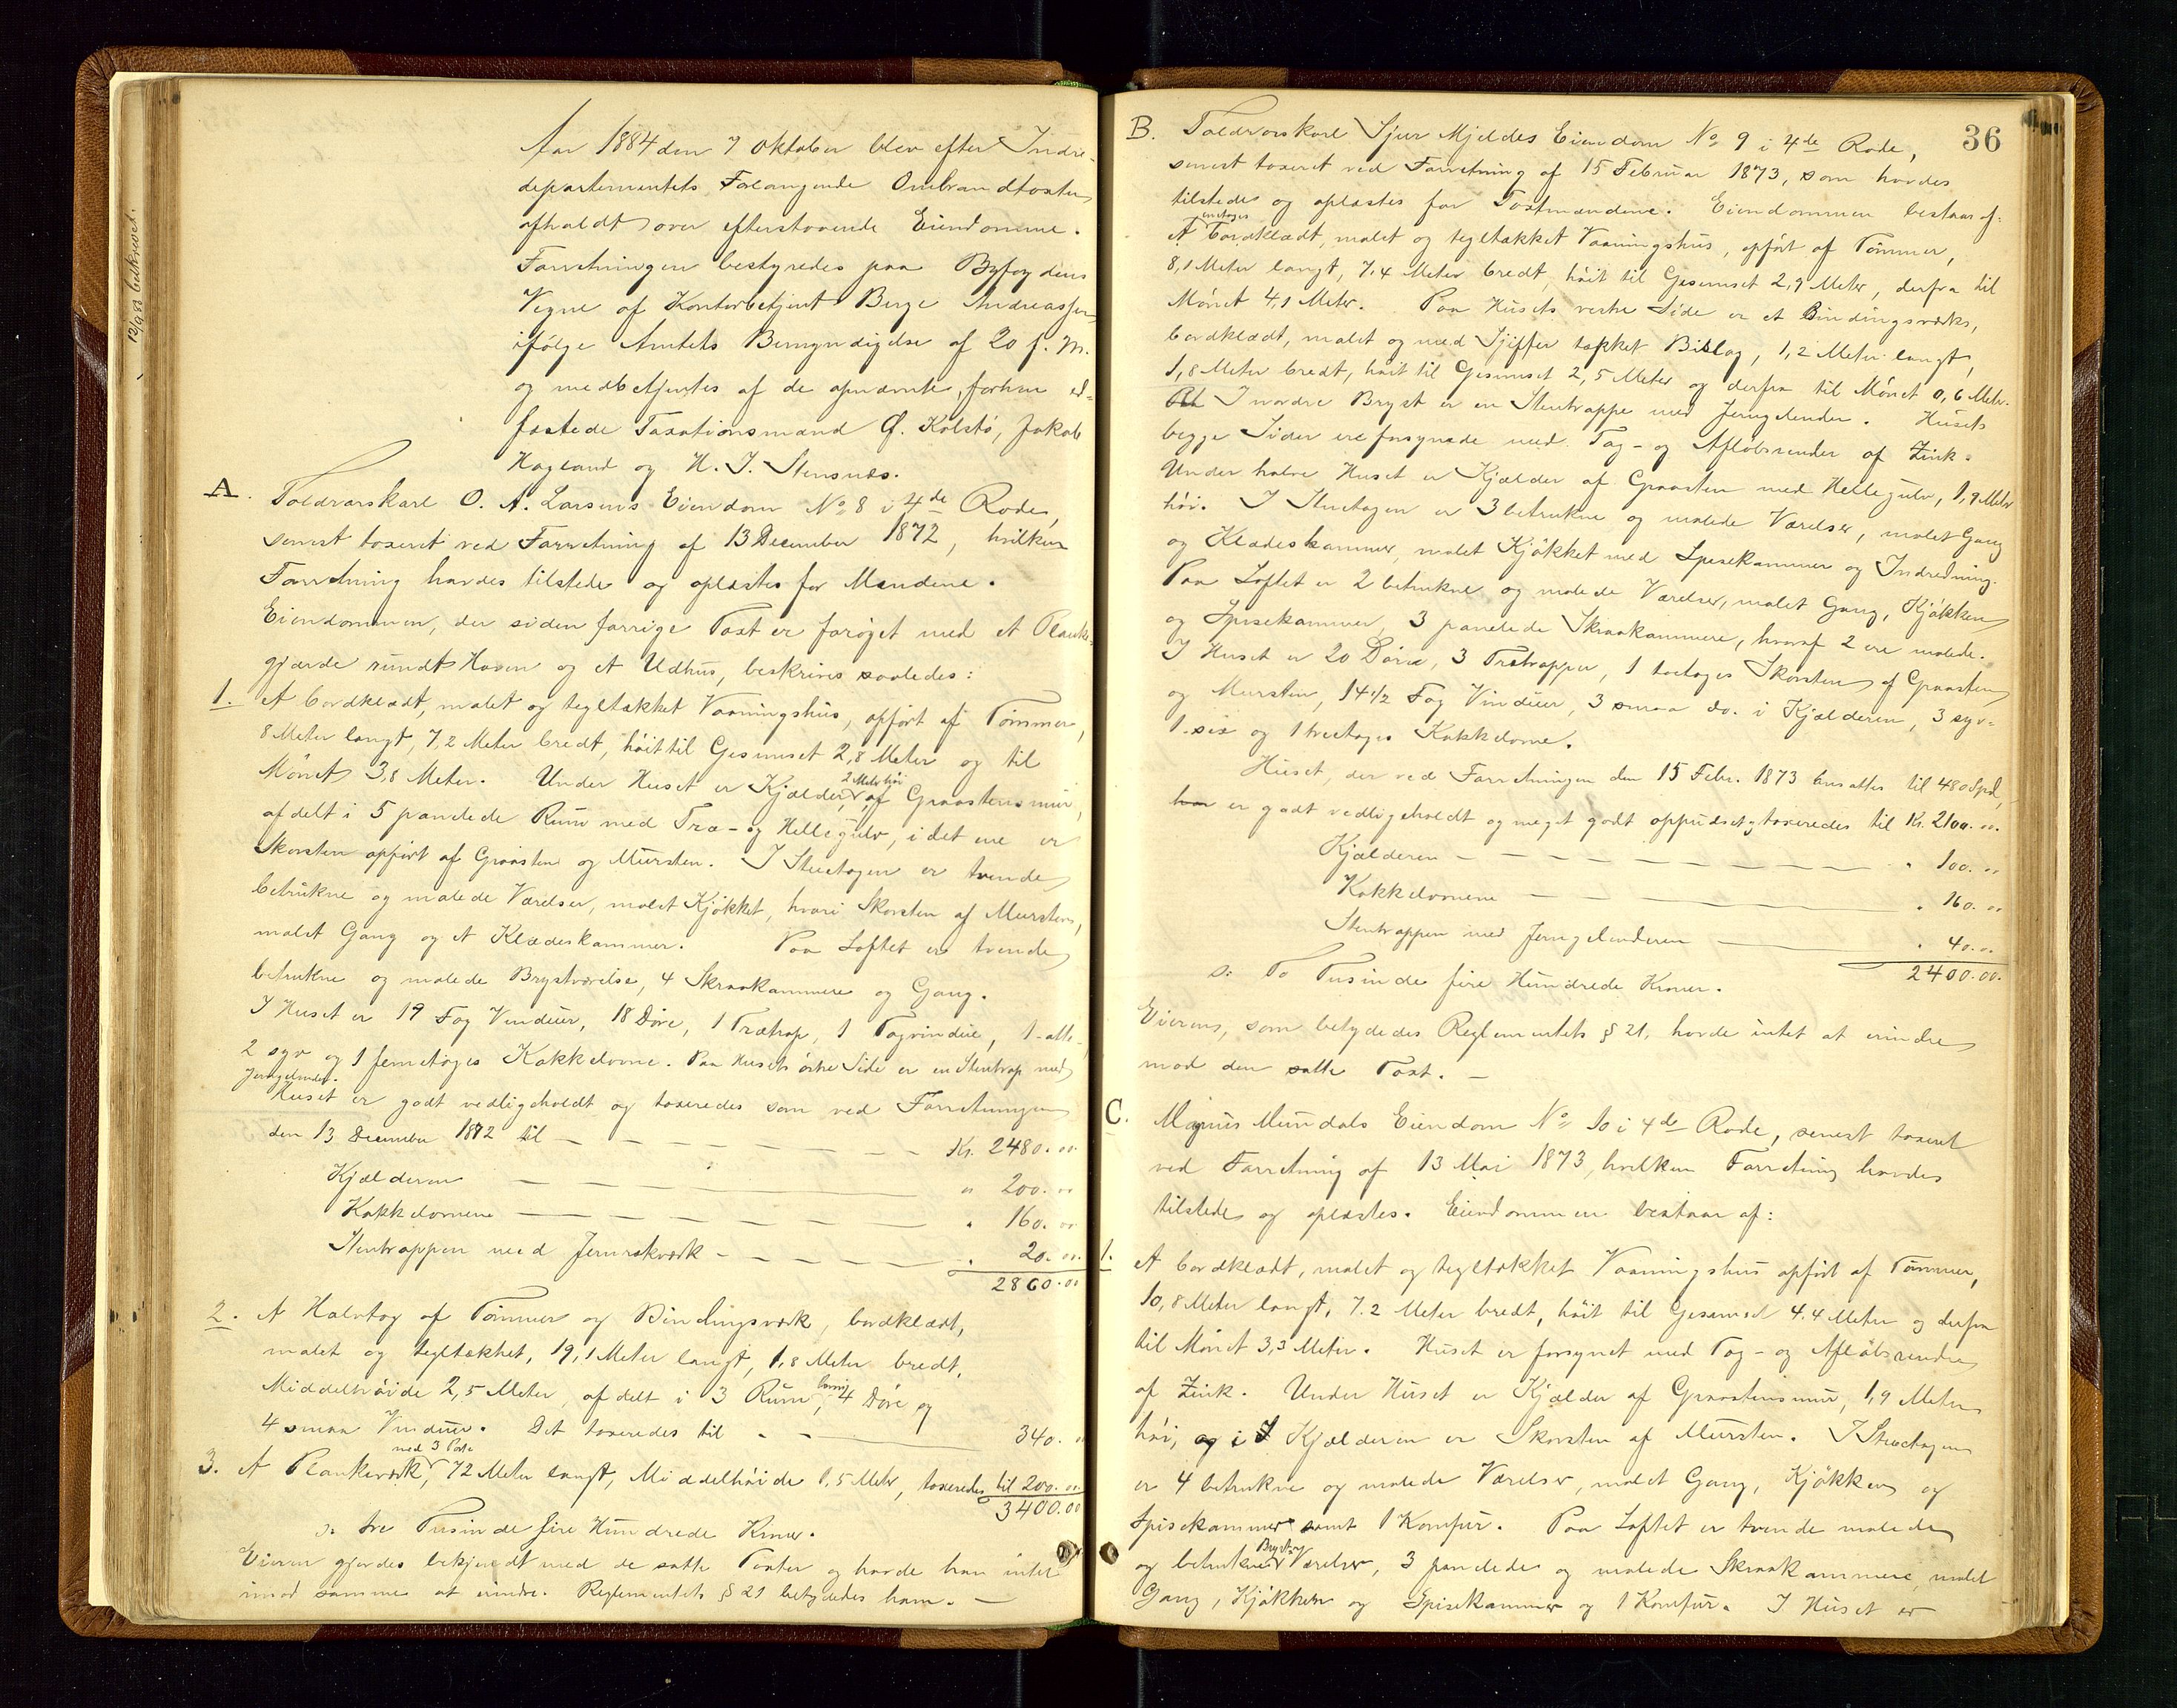 12/9 93 beskrevet.
Aar 1884 den 7 Oktober blev efter Indre-
departementets Forlangende Ombrandtaxter
afholdt over efterstaaende Eiendomme.
Forretningen bestyredes paa Byfogdens
Vegne af Kontorbetjent Berge Andreassen,
ifølge Amtets Bemyndigelse af 20 f. M.
og medbetjentes af de opnævnte, forhen ed-
fæstede Taxationsmænd Ø. Kolstø, Jakob
Hagland og H. J. Stensnæs.
A. Toldvorskarl O. A. Larsens Eiendom No 8 i 4de Rode,
senest taxeret ved Forretning af 13 December 1872, hvilken
Forretning havdes tilstede og oplæstes for Mændene.
Eiendommen, der siden forrige Taxt er forøget med et Planke-
gjærde rundt Haven og et Udhus, beskrives saaledes:
1. Et bordklædt, malet og tegltækket Vaaningshus, opført af Tømmer,
8 Meter langt, 7,2 Meter bredt, høit til Gesimset 2,8 Meter og til
Mønet 3,8 Meter. Under Huset er Kjælder, 2 Meter høi af Graastensmur,
afdelt i 5 panelede Rum med Træ- og Hellegulv, i det ene er
Skorsten opført af Graasten og Mursten. I Stuetagen er tvende
betrukne og malede Værelser, malet Kjøkken, hvori Skorsten af Mursten,
malet Gang og et Klædeskammer. Paa Loftet er tvende
betrukne og malede Brystværelse, 4 Skraakammere og Gang.
I Huset er 19 Fag Vinduer, 18 Døre, 1 Trætrap, 1 Tagvindue, 1 otte-,
2 syv og 1 femetages Kakkelovne. Paa Husets østre Side er en Stentrap med
Jerngelender.
Huset er godt vedligeholdt og taxeredes som ved Forretningen
den 13 December 1872 til — Kr. 2480. 00
Kjælderen — " 200. 00
Kakkelovnene — " 160. 00
Stentrappen med Jernrækværk — " 20. 00
2860. 00
2. Et Halvtag af Tømmer og Bindingsværk, bordklædt,
malet og tegltækket, 19,1 Meter langt, 1,8 Meter bredt,
Middelhøide 2,5 Meter, afdelt i 3 Rum, hvori 4 Døre og
4 smaa Vinduer. Det taxeredes til — 340. 00
3. Et Plankeværk, med 3 Porte 72 Meter langt, Middelhøide 1,5 Meter, taxeredes til 200. 00
3400.00
ɔ: tre Tusinde fire Hundrede Kroner.
Eieren gjordes bekjendt med de satte Taxter og havde han intet
imod samme at erindre. Reglementets § 21 betydedes ham. —
36
B. Toldvorskarl Sjur Mjeldes Eiendom No 9 i 4de Rode,
senest taxeret ved Forretning af 15 Februar 1873, som havdes
tilstede og oplæstes for Taxtmændene. Eiendommen bestaar af:
Et enetages bordklædt, malet og tegltækket Vaaningshus, opført af Tømmer,
8,1 Meter langt, 7.4 Meter bredt, høit til Gesimset 2,9 Meter, derfra til
Mønet 4,1 Meter. Paa Husets vestre Side er et Bindingsværks,
bordklædt, malet og med Skiffer tækket Bislag, 1,2 Meter langt,
1,8 Meter bredt, høit til Gesimset 2,5 Meter og derfra til Mønet 0,6 Meter.
I nordre Bryst er en Stentrappe med Jerngelender. Husets
begge Sider ere forsynede med Tag- og Afløbsrender af Zink.
Under halve Huset er Kjælder af Graasten med Hellegulv, 1,9 Meter
høi. I Stuetagen er 3 betrukne og malede Værelser, malet Gang
og Klædeskammer, malet Kjøkken med Spisekammer og Indredning.
Paa Loftet er 2 betrukne og malede Værelser, malet Gang, Kjøkken
og Spisekammer, 3 panelede Skraakammere, hvoraf 2 ere malede.
I Huset er 20 Døre, 3 Trætrapper, 1 toetages Skorsten af Graasten
og Mursten, 14 1/2 Fag Vinduer, 3 smaa do. i Kjælderen, 3 syv-
1 sex og 1 treetages Kakkelovne.
Huset, der ved Forretningen den 15 Febr. 1873 ansattes til 480 Spd,
er godt vedligeholdt og meget godt oppudset, taxeredes til Kr. 2100. 00.
Kjælderen — " 100. 00
Kakkelovnene — " 160. 00
Stentrappen med Jerngelænderen — " 40. 00
2400.00.
ɔ: To Tusinde fire Hundrede Kroner.
Eieren, som betydedes Reglementets § 21, havde intet at erindre
mod den satte Taxt. —
C. Magnus Mundals Eiendom No 10 i 4de Rode, senest taxeret
ved Forretning af 13 Mai 1873, hvilken Forretning havdes
tilstede og oplæstes. Eiendommen bestaar af:
1. Et bordklædt, malet og tegltækket Vaaningshus opført af Tømmer,
10,8 Meter langt, 7.2 Meter bredt, høit til Gesimset 4.4 Meter og derfra
til Mønet 3,3 Meter. Huset er forsynet med Tag- og Afløbsrender
af Zink. Under Huset er Kjælder af Graastensmur, 1,9 Meter
høi, og i Kjælderen er Skorsten af Mursten. I Stuetagen
er 4 betrukne og malede Værelser, malet Gang, Kjøkken og
Spisekammer samt 1 Komfur. Paa Loftet er tvende malede
og betrukne Bryst-Værelser, 3 panelede og malede Skraakammere, malet
Gang, Kjøkken og Spisekammer og 1 Komfur. I Huset er